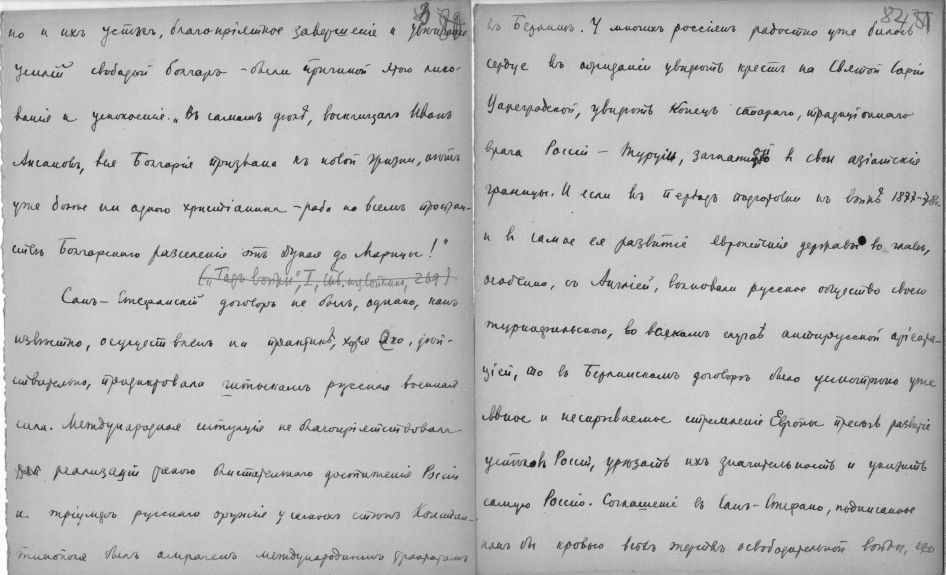 но и ихъ устахъ, благопріятное завершеніе и увѣнчаніе
усилій свободы болгаръ – были причиной этого лико-
ванія и успокоенія. „Въ самомъ дѣлѣ, восклицалъ Иванъ
Аксаковъ, вся Болгарія призвана къ новой жизни, нѣтъ
уже болѣе ни одного христіанина – раба на всемъ простран-
ствѣ Болгарскаго разселенія отъ Дуная до Марицы!"
I, 269)
Санъ-Стефанскій договоръ не былъ, однако, какъ
извѣстно, осуществленъ на практикѣ, хотя его, дѣй-
ствительно, продиктовала русская военная
сила. Международная ситуація не благопріятствовала
реализаціи такого блистательнаго достиженія Россіи
и тріумфъ русскаго оружія у самыхъ стѣнъ Констан-
тинополя былъ омраченъ международнымъ
82
въ Берлинѣ. У многихъ россіянъ радостно уже билось
сердце въ ожиданіи увидѣть крестъ на Святой Софіи
Цареградской, увидѣть конецъ стараго, традиціоннаго
врага Россіи – Турціи, въ свои азіатскіе
границы. И если въ періодъ подготовки къ войнѣ 1877-78г.
и въ самое ея развитіе европейскія державы во главѣ,
особенно, съ Англіей, волновали русское общество своею
во всякомъ случаѣ антирусской оріента-
ціей, то въ Берлинскомъ договорѣ было усмотрѣно уже
явное и нескрываемое стремленіе Европы пресѣчь развитіе
успѣховъ Россіи, урѣзать ихъ значительность и унизить
самую Россію. Соглашеніе въ Санъ-Стефано, подписанное
какъ бы кровью всѣхъ жертвъ освободительной войны,